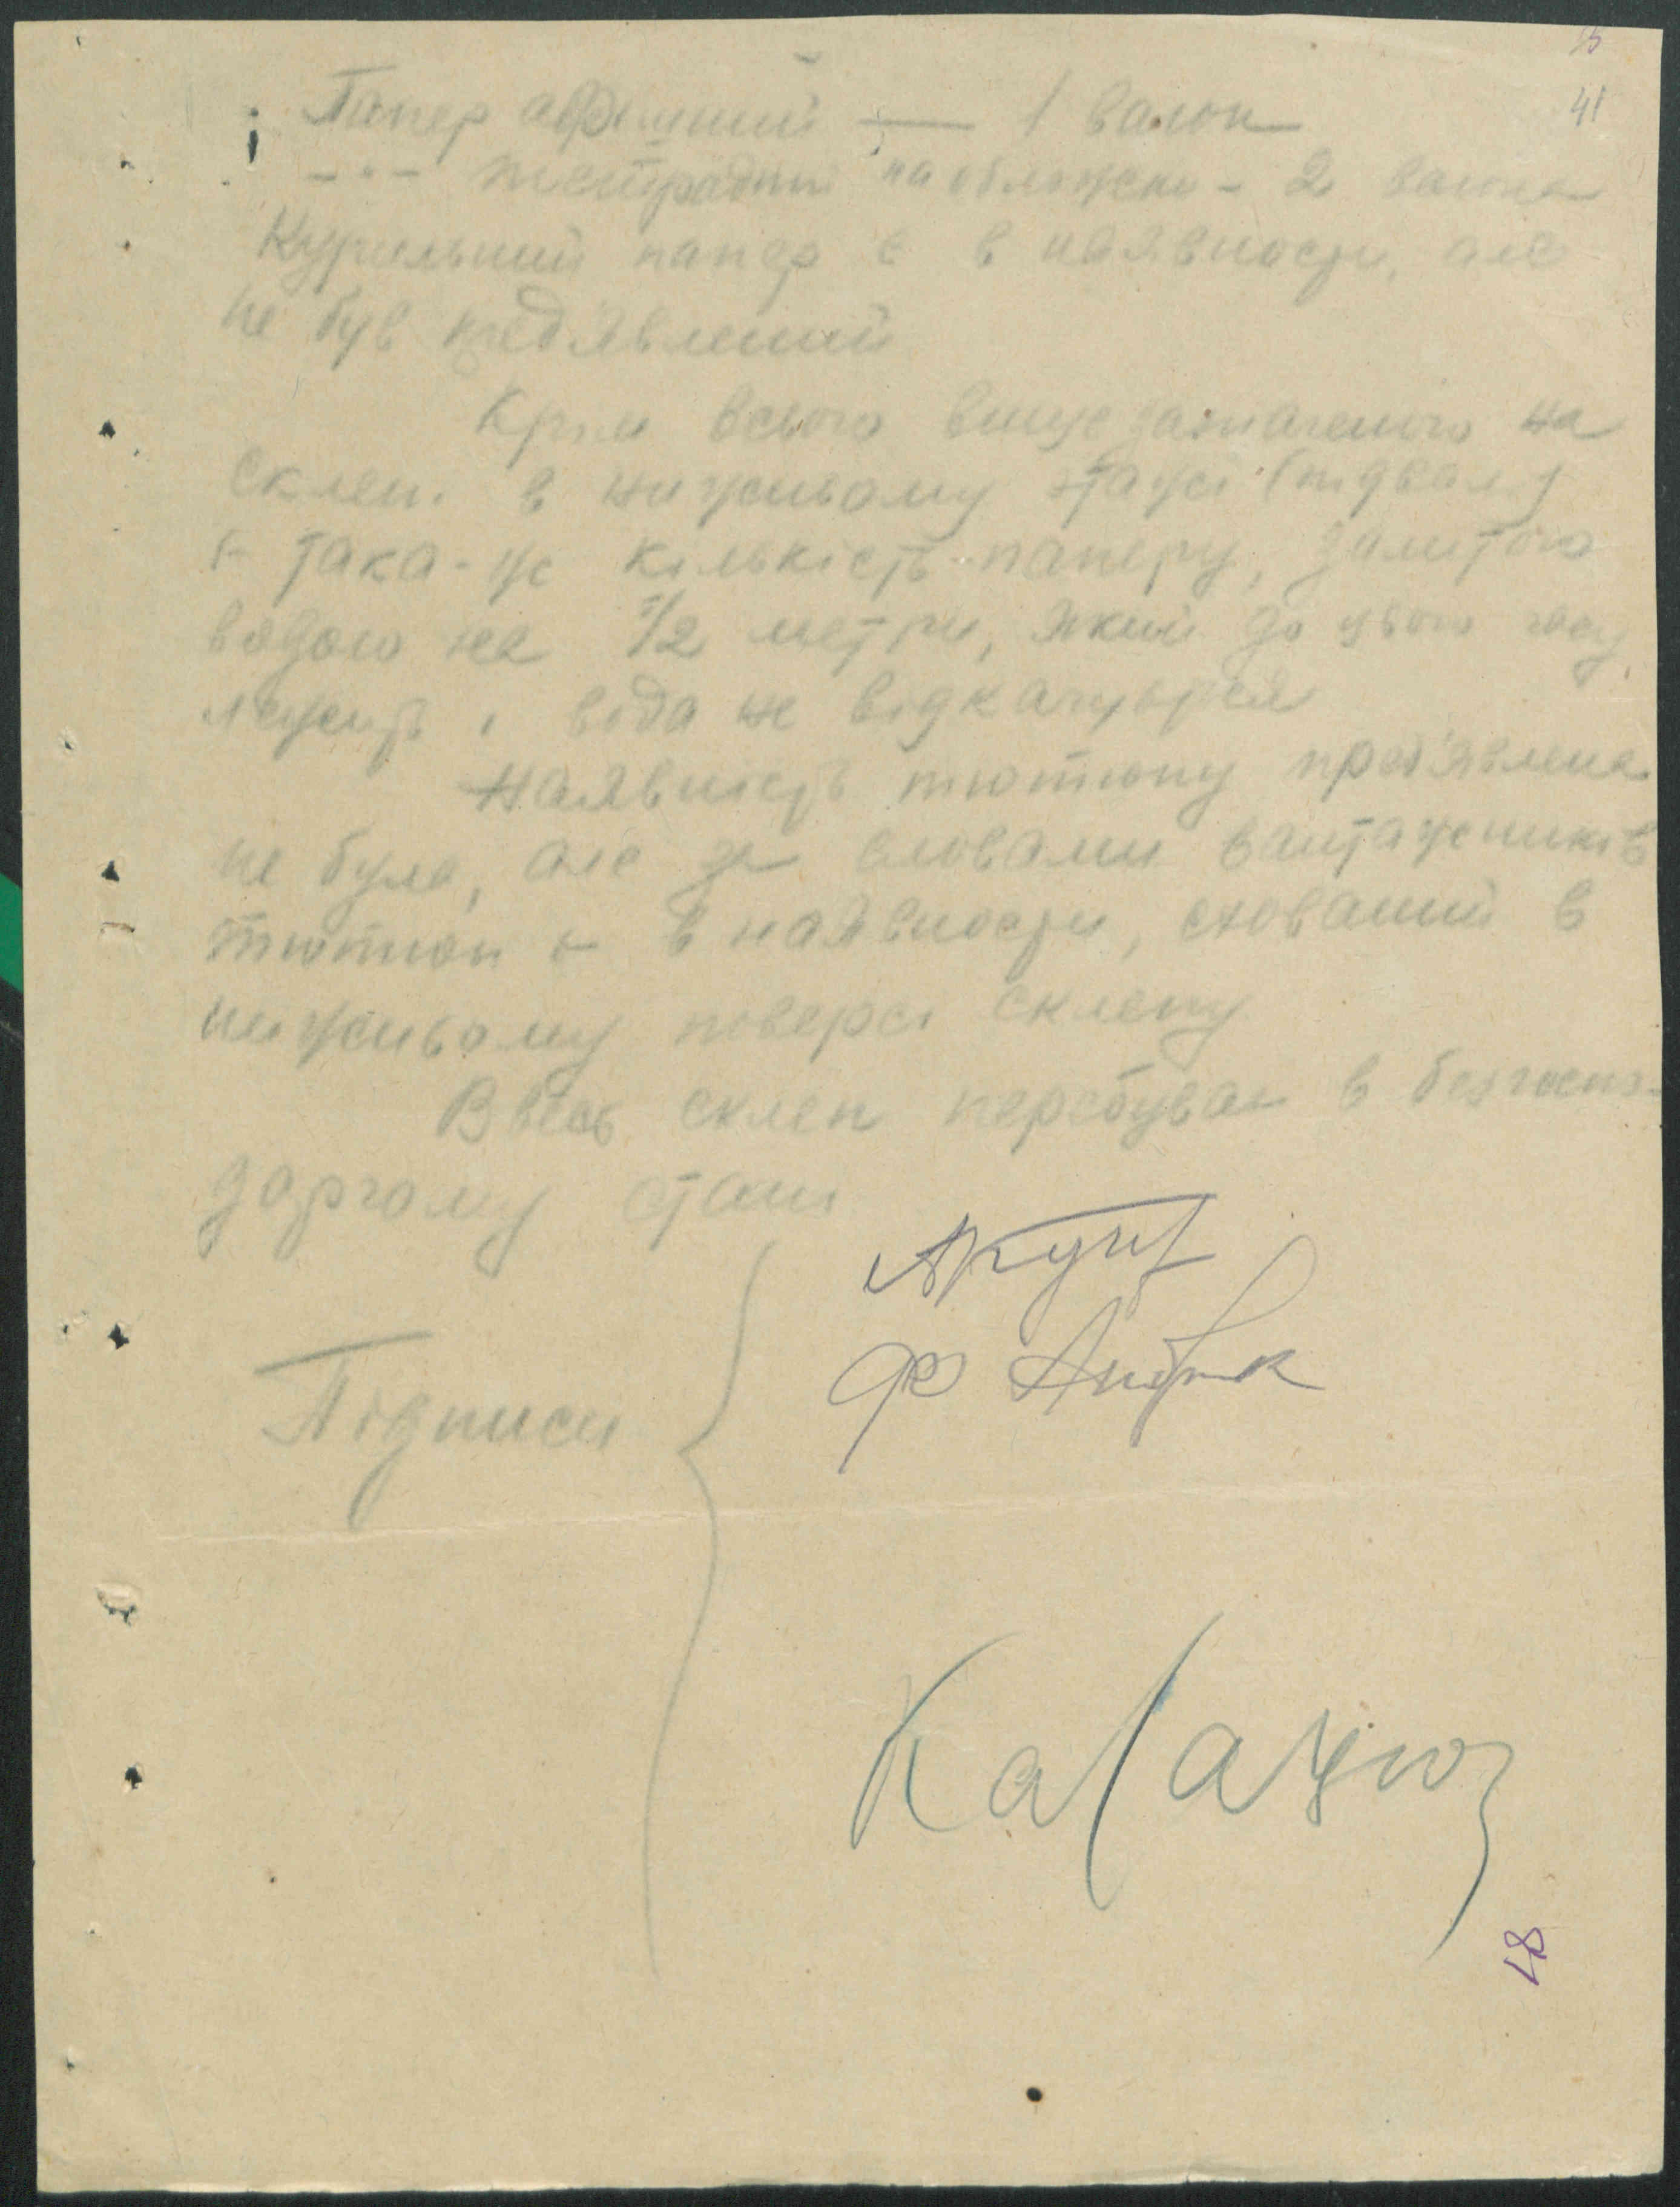 41
Папер афішний — 1 вагон
-"- тетрадни на обложки - 2 вагона
Курильний папер є в наявности, але
не був предявлений
Крім всього вищезазначеного на
склепі в нижньому етажі (підвал)
є така-же кількість паперу, залитого
водою на 1/2 метри, який до цього часу
лежить і вода не відкачується
Наявність тютюну предявлена
не була, але за словами вантажників
тютюн є в наявности, схований в
нижньому поверсі склепу
Ввесь склеп перебуває в безгоспо-
дарчому стані
Підписи
18